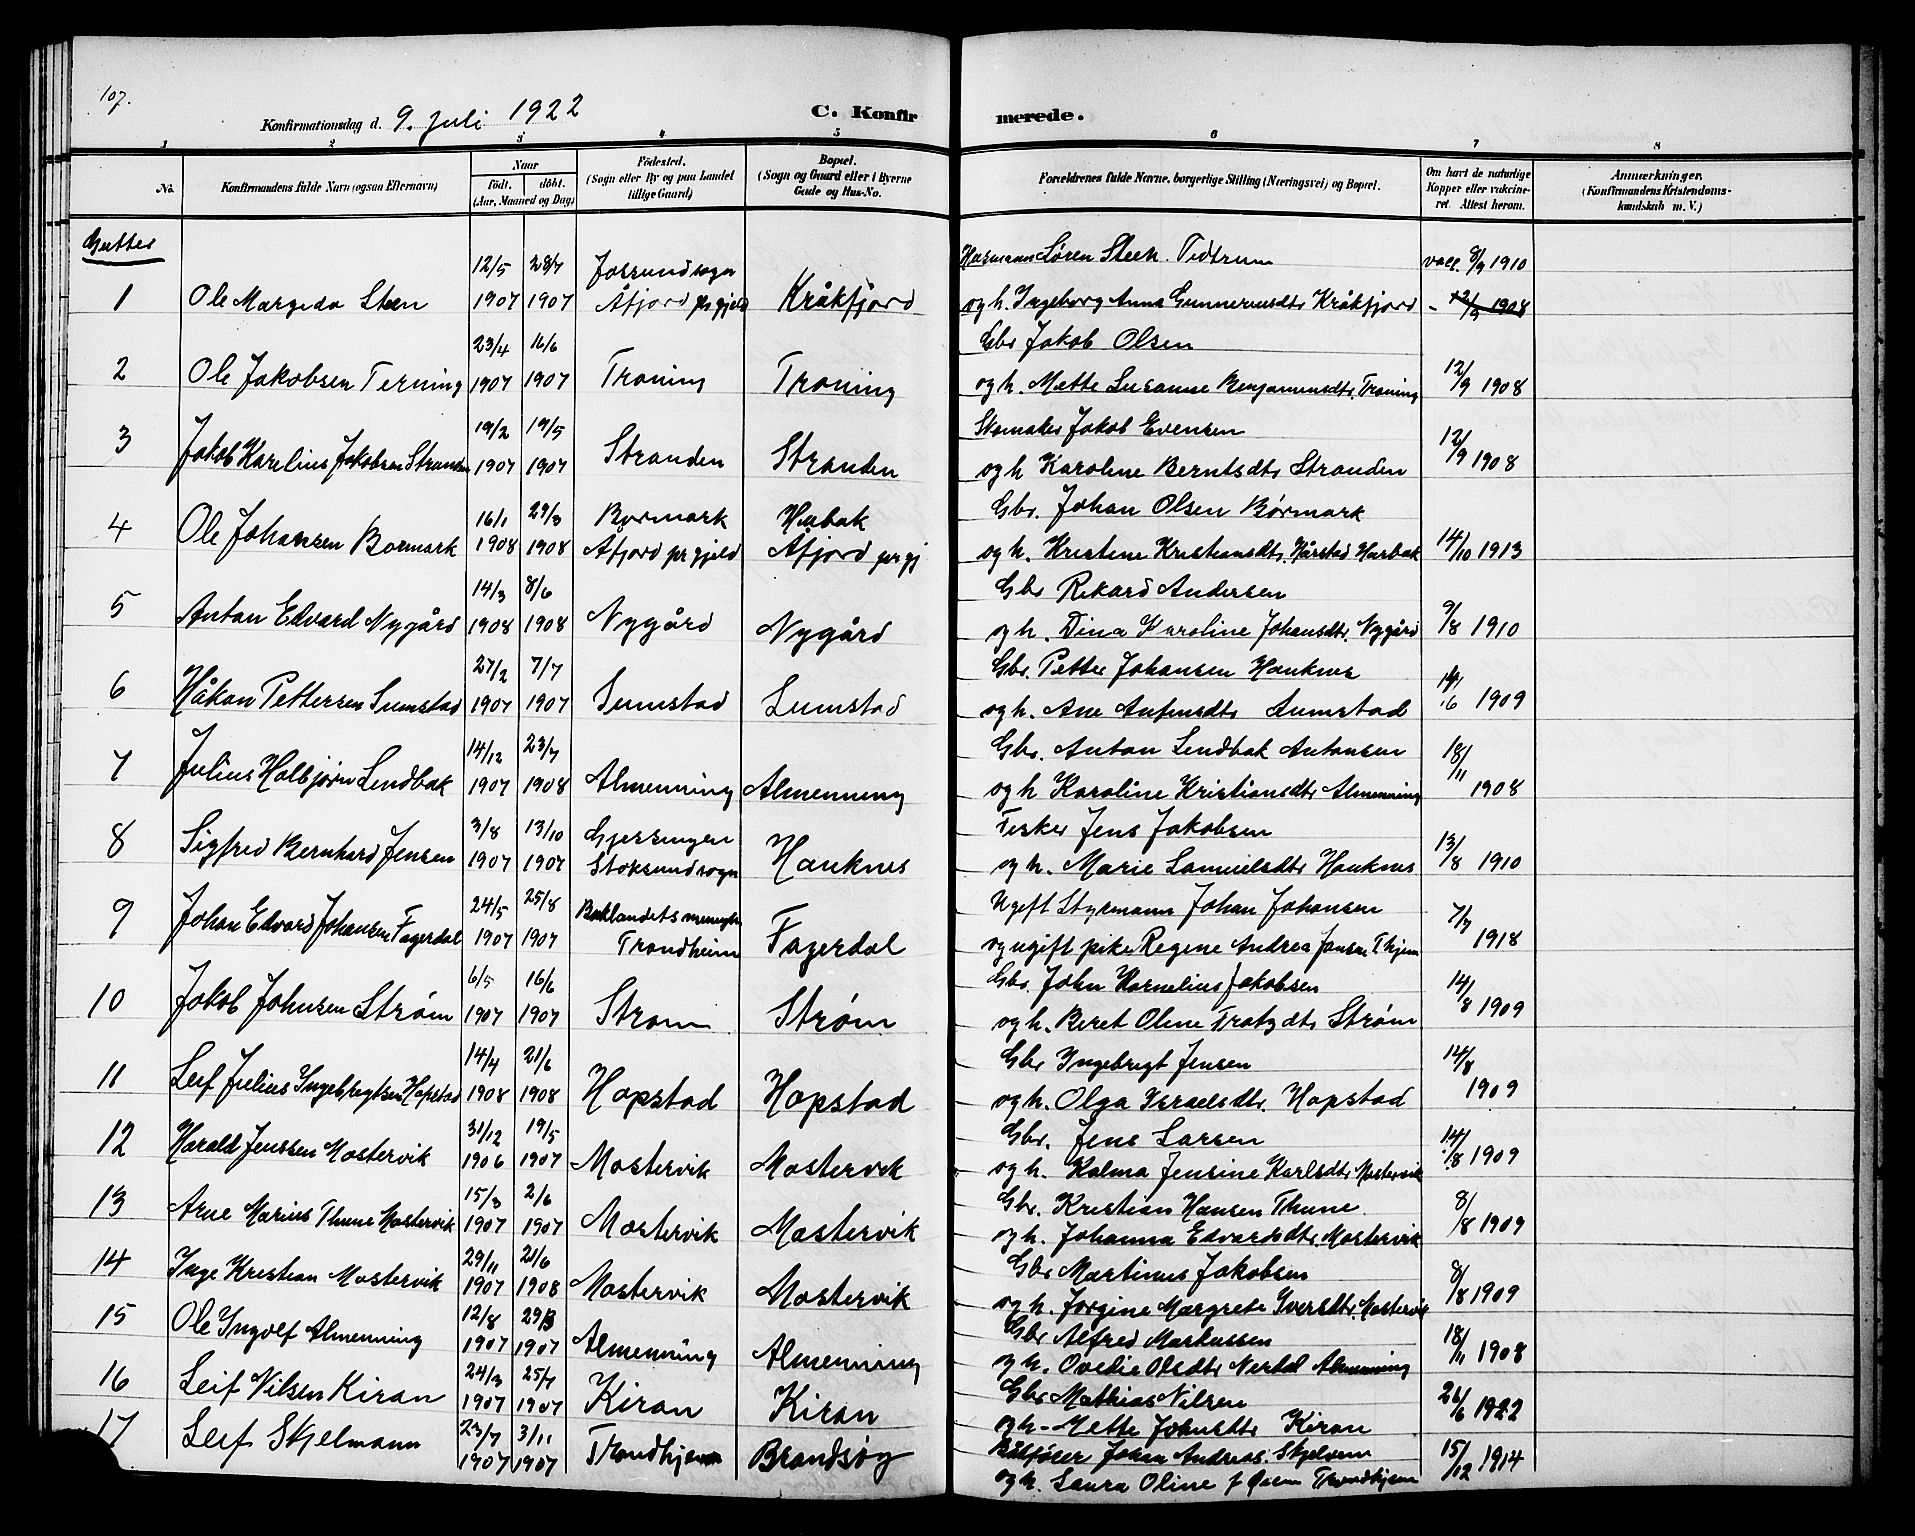 107.
Konfirmationsdag d. 9. juli 1922
C. Konfirmerede.
1 2 3 4 5 6 7 8
No. Konfirmandens fulde Navn (ogsaa Efternavn) Naar født. døbt. (Aar, Maaned og Dag) Fødested. (Sogn eller By og paa Landet tillige Gaard) Bopæl. (Sogn og Gaard eller i Byerne Gade og Hus-No. Forældrenes fulde Navne, borgerlige Stilling (Næringsvei) og Bopæl. Om havt de naturlige Kopper eller vaccineret. Attest herom. Anmerkninger. (Konfirmandens Kristendomskundskab m. V.)
Gutter
12/5 28/7 Jøssundsogn Søren Steen vacc. 8/9 1910
1 Ole Margido Steen 1907 1907 Åfjord prgjeld Kråkfjord og h. Ingeborg Anna Gunnerusdtr Kråkfjord - 12/9 1908
23/4 16/6 Gbr Jakob Olsen
2 Ole Jakobsen Terning 1907 1907 Traning Traning og h. Mette Susanne Benjaminsdtr. Traning 12/9 1908
19/2 19/5 Skomaker Jakob Evensen
3 Jakob Karelius Jakobsen Stranden 1907 1907 Stranden Stranden og h Karoline Berntsdtr Stranden 12/9 1908
16/1 29/3 Børmark Harbak Gbr. Johan Olsen Børmark
4 Ole Johansen Børmark 1908 1908 Åfjord prgjeld Åfjord prgj og h. Kristine Kristiansdtr. Hårstad Harbak 14/10 1913
14/3 8/6 Gbr Rikard Andersen
5 Anton Edvard Nygård 1908 1908 Nygård Nygård og h. Dina Karoline Johansdtr. Nygård 9/8 1910
27/2 7/7 Gbr. Petter Johansen Hauknes
6 Håkon Pettersen Sumstad 1907 1907 Sumstad Sumstad og h. Ane Antonsdtr Sumstad 14/6 1909
14/12 23/7 Gbr. Anton Lendbak Antonsen
7 Julius Halbjørn Lendbak 1907 1908 Almenning Almenning og h Karoline Kristiansdtr Almenning 18/11 1908
3/8 13/10 Gjessingen Fisker Jens Jakobsen
8 Sigfred Bernhard Jensen 1907 1907 Stoksundsogn Hauknes og h. Marie Samuelsdtr Hauknes 13/8 1910
24/5 25/8 Baklandets menighet Ugift Styrmann Johan Johansen
9 Johan Edvard Johansen Fagerdal 1907 1907 Trondheim Fagerdal og ugift pike Regine Andrea Jansen Thjem 7/7 1918
6/5 16/6 Gbr. John Kornelius Jakobsen
10 Jakob Johnsen Strøm 1907 1907 Strøm Strøm og h. Beret Oline Strøm 14/8 1909
14/4 21/6 Gbr Ingebrigt Jensen
11 Leif Julius Ingebrigtsen Hopstad 1908 1908 Hopstad Hopstad og h. Olga Israelsdtr. Hopstad 14/8 1909
31/12 19/5 Gbr. Jens Larsen
12 Harald Jenssen Mostervik 1906 1907 Mostervik Mostervik og h. Kalma Jensine Karlsdtr Mostervik 14/8 1909
15/3 2/6 Gbr. Kristian Hansen Thune.
13 Arne Marius Thune Mostervik 1907 1907 Mostervik Mostervik og h. Johanna Edvardsdtr. Mostervik 8/8 1909
29/11 21/6 Gbr Martinus Jakobsen
14 Inge Kristian Mostervik 1907 1908 Mostervik Mostervik og h. Jorgine Margrete Iversdtr. Mostervik 8/8 1909
12/8 29/ Gbr Alfred Markussen
15 Ole Ingolf Almenning 1907 1907 Almenning Almenning og h. Ovedie Olsdtr Almenning 18/11 1908
24/3 25/7 Gbr Mathias Nilsen
16 Leif Nilsen Kiran 1907 1907 Kiran Kiran og h - Mette Johnsdtr Kiran 26/6 1922
23/7 3/11 Johan Andreas. Skjelvem
17 Leif Skjelmann 1907 1907 Trondhjem Brandsøy og h. Laura Oline f Trondhjem 15/12 1914